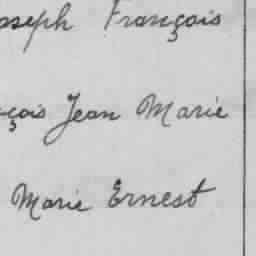 oseph François
çois Jean Marie
Marie Ernest